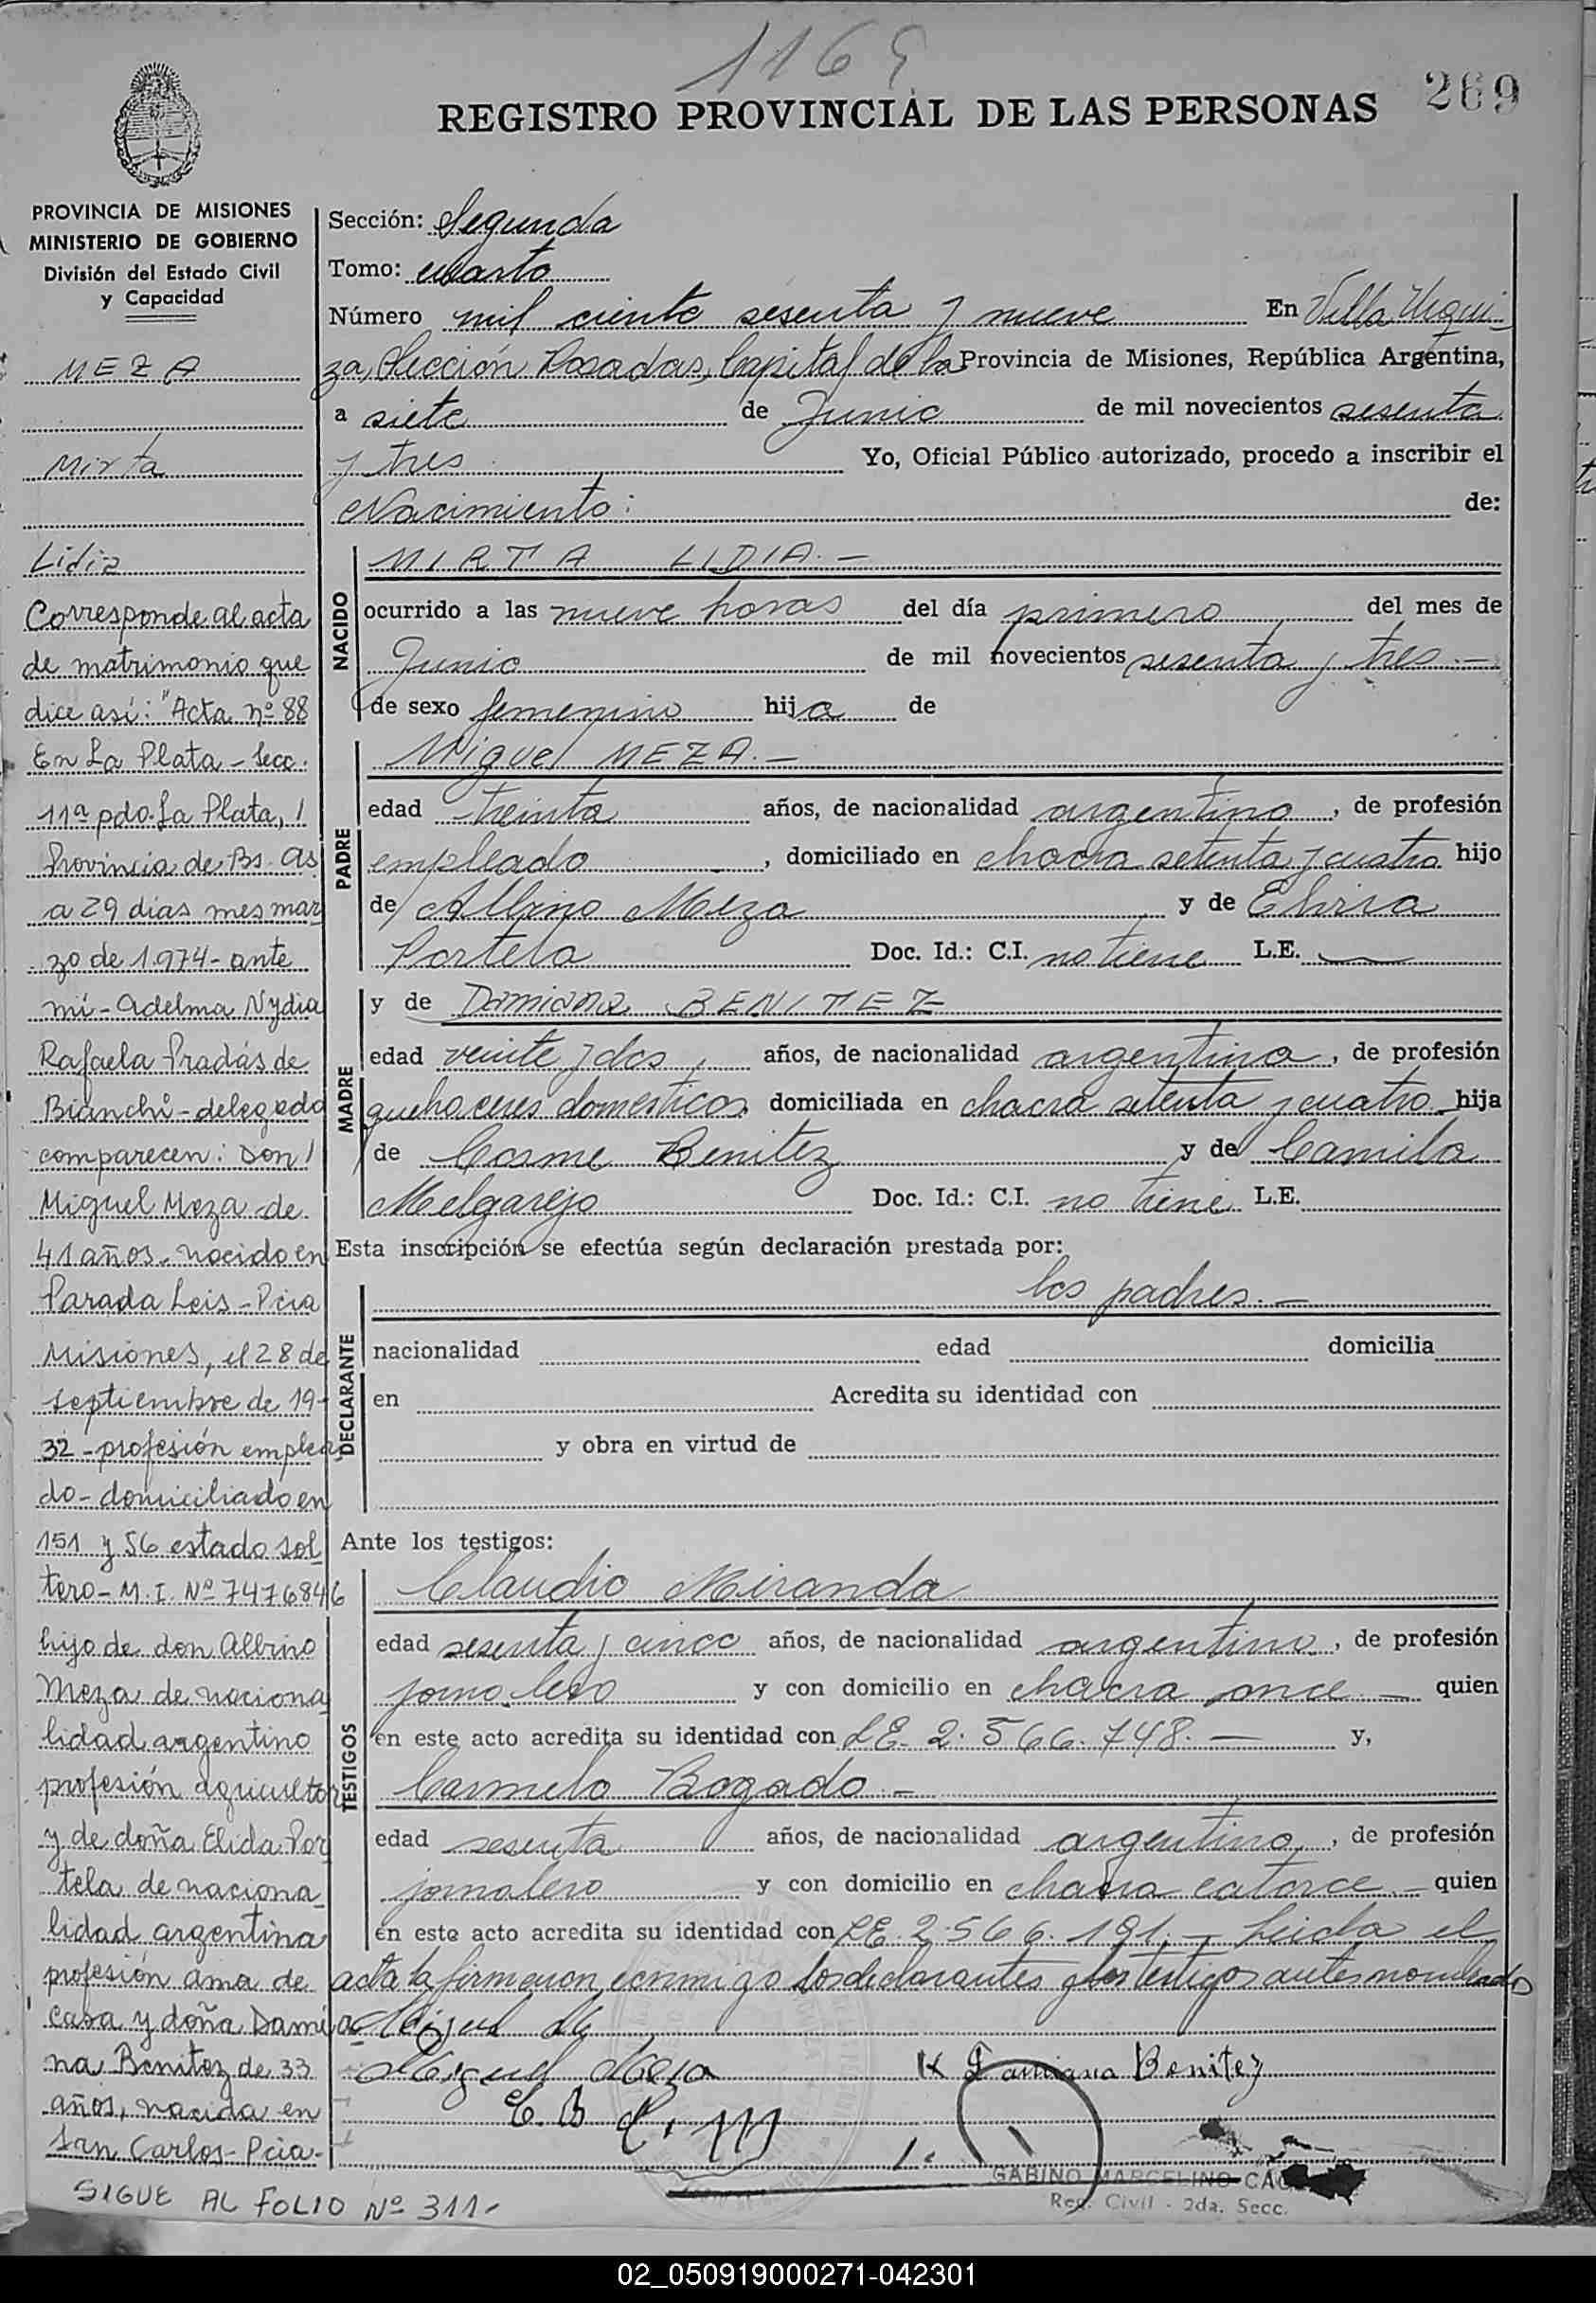 1169
269
REGISTRO PROVINCIAL DE LAS PERSONAS
PROVINCIA DE MISIONES
MINISTERIO DE GOBIERNO
División del Estado Civil
y Capacidad
MEZA
Mirta
Lidia
Corresponde al acta
de matrimonio que
dice así: "Acta nº 88
En La Plata - Secc.
11ª pdo. La Plata, /
Provincia de Bs. As
a 29 días mes mar
zo de 1.974 - ante
mí - Adelma Nydia
Rafaela Pradás de
Bianchi - delegada
comparecen: Don /
Miguel Meza de
41 años - nacido en
Parada Leis - Pcia
Misiones, el 28 de
septiembre de 19-
32 - profesión emplea
do - domiciliado en
151 y 56 estado sol
tero - M. I. Nº 7476846
hijo de don Albino
Meza de naciona
lidad argentino
profesión agricultor
y de doña Elida Por
tela de naciona
lidad argentina
profesión ama de
casa y doña Damia
na Benitez de 33
años, nacida en
San Carlos - Pcia -
SIGUE AL FOLIO Nº 311-
Sección: Segunda
Tomo: cuarto
Número mil ciento sesenta y nueve En Villa Urqui-
za, Sección Posadas, Capital de la Provincia de Misiones, República Argentina,
a siete de Junio de mil novecientos sesenta
y tres Yo, Oficial Público autorizado, procedo a inscribir el
Nacimiento: de:
NACIDO
MIRTA LIDIA. -
ocurrido a las nueve horas del día primero del mes de
Junio de mil novecientos sesenta y tres. -
de sexo femenino hija de
PADRE
Miguel MEZA. -
edad treinta años, de nacionalidad argentino, de profesión
empleado, domiciliado en chacra setenta y cuatro hijo
de Albino Meza y de Elvira
Portela Doc. Id.: C.I. no tiene L.E.
MADRE
y de Damiana BENITEZ
edad veinte y dos, años, de nacionalidad argentina, de profesión
quehaceres domesticos domiciliada en chacra setenta y cuatro hija
de Cosme Benitez y de Camila
Melgarejo Doc. Id.: C.I. no tiene L.E.
Esta inscripción se efectúa según declaración prestada por:
DECLARANTE
los padres. -
nacionalidad edad domicilia
en Acredita su identidad con
y obra en virtud de
Ante los testigos:
TESTIGOS
Claudio Miranda
edad sesenta y cinco años, de nacionalidad argentino, de profesión
jornalero y con domicilio en chacra once. - quien
en este acto acredita su identidad con LE. 2.566.748. - y,
Carmelo Bogado. -
edad sesenta años, de nacionalidad argentino, de profesión
jornalero y con domicilio en chacra catorce. - quien
en este acto acredita su identidad con LE. 2.566.191. - Leida el
acta la firmaron conmigo los declarantes y los testigos antes nombrados
Miguel Me
Miguel Meza Damiana Benitez
C. B C. M
GABINO MARCELINO
Reg. Civil - 2da. Secc.
02_050919000271-042301